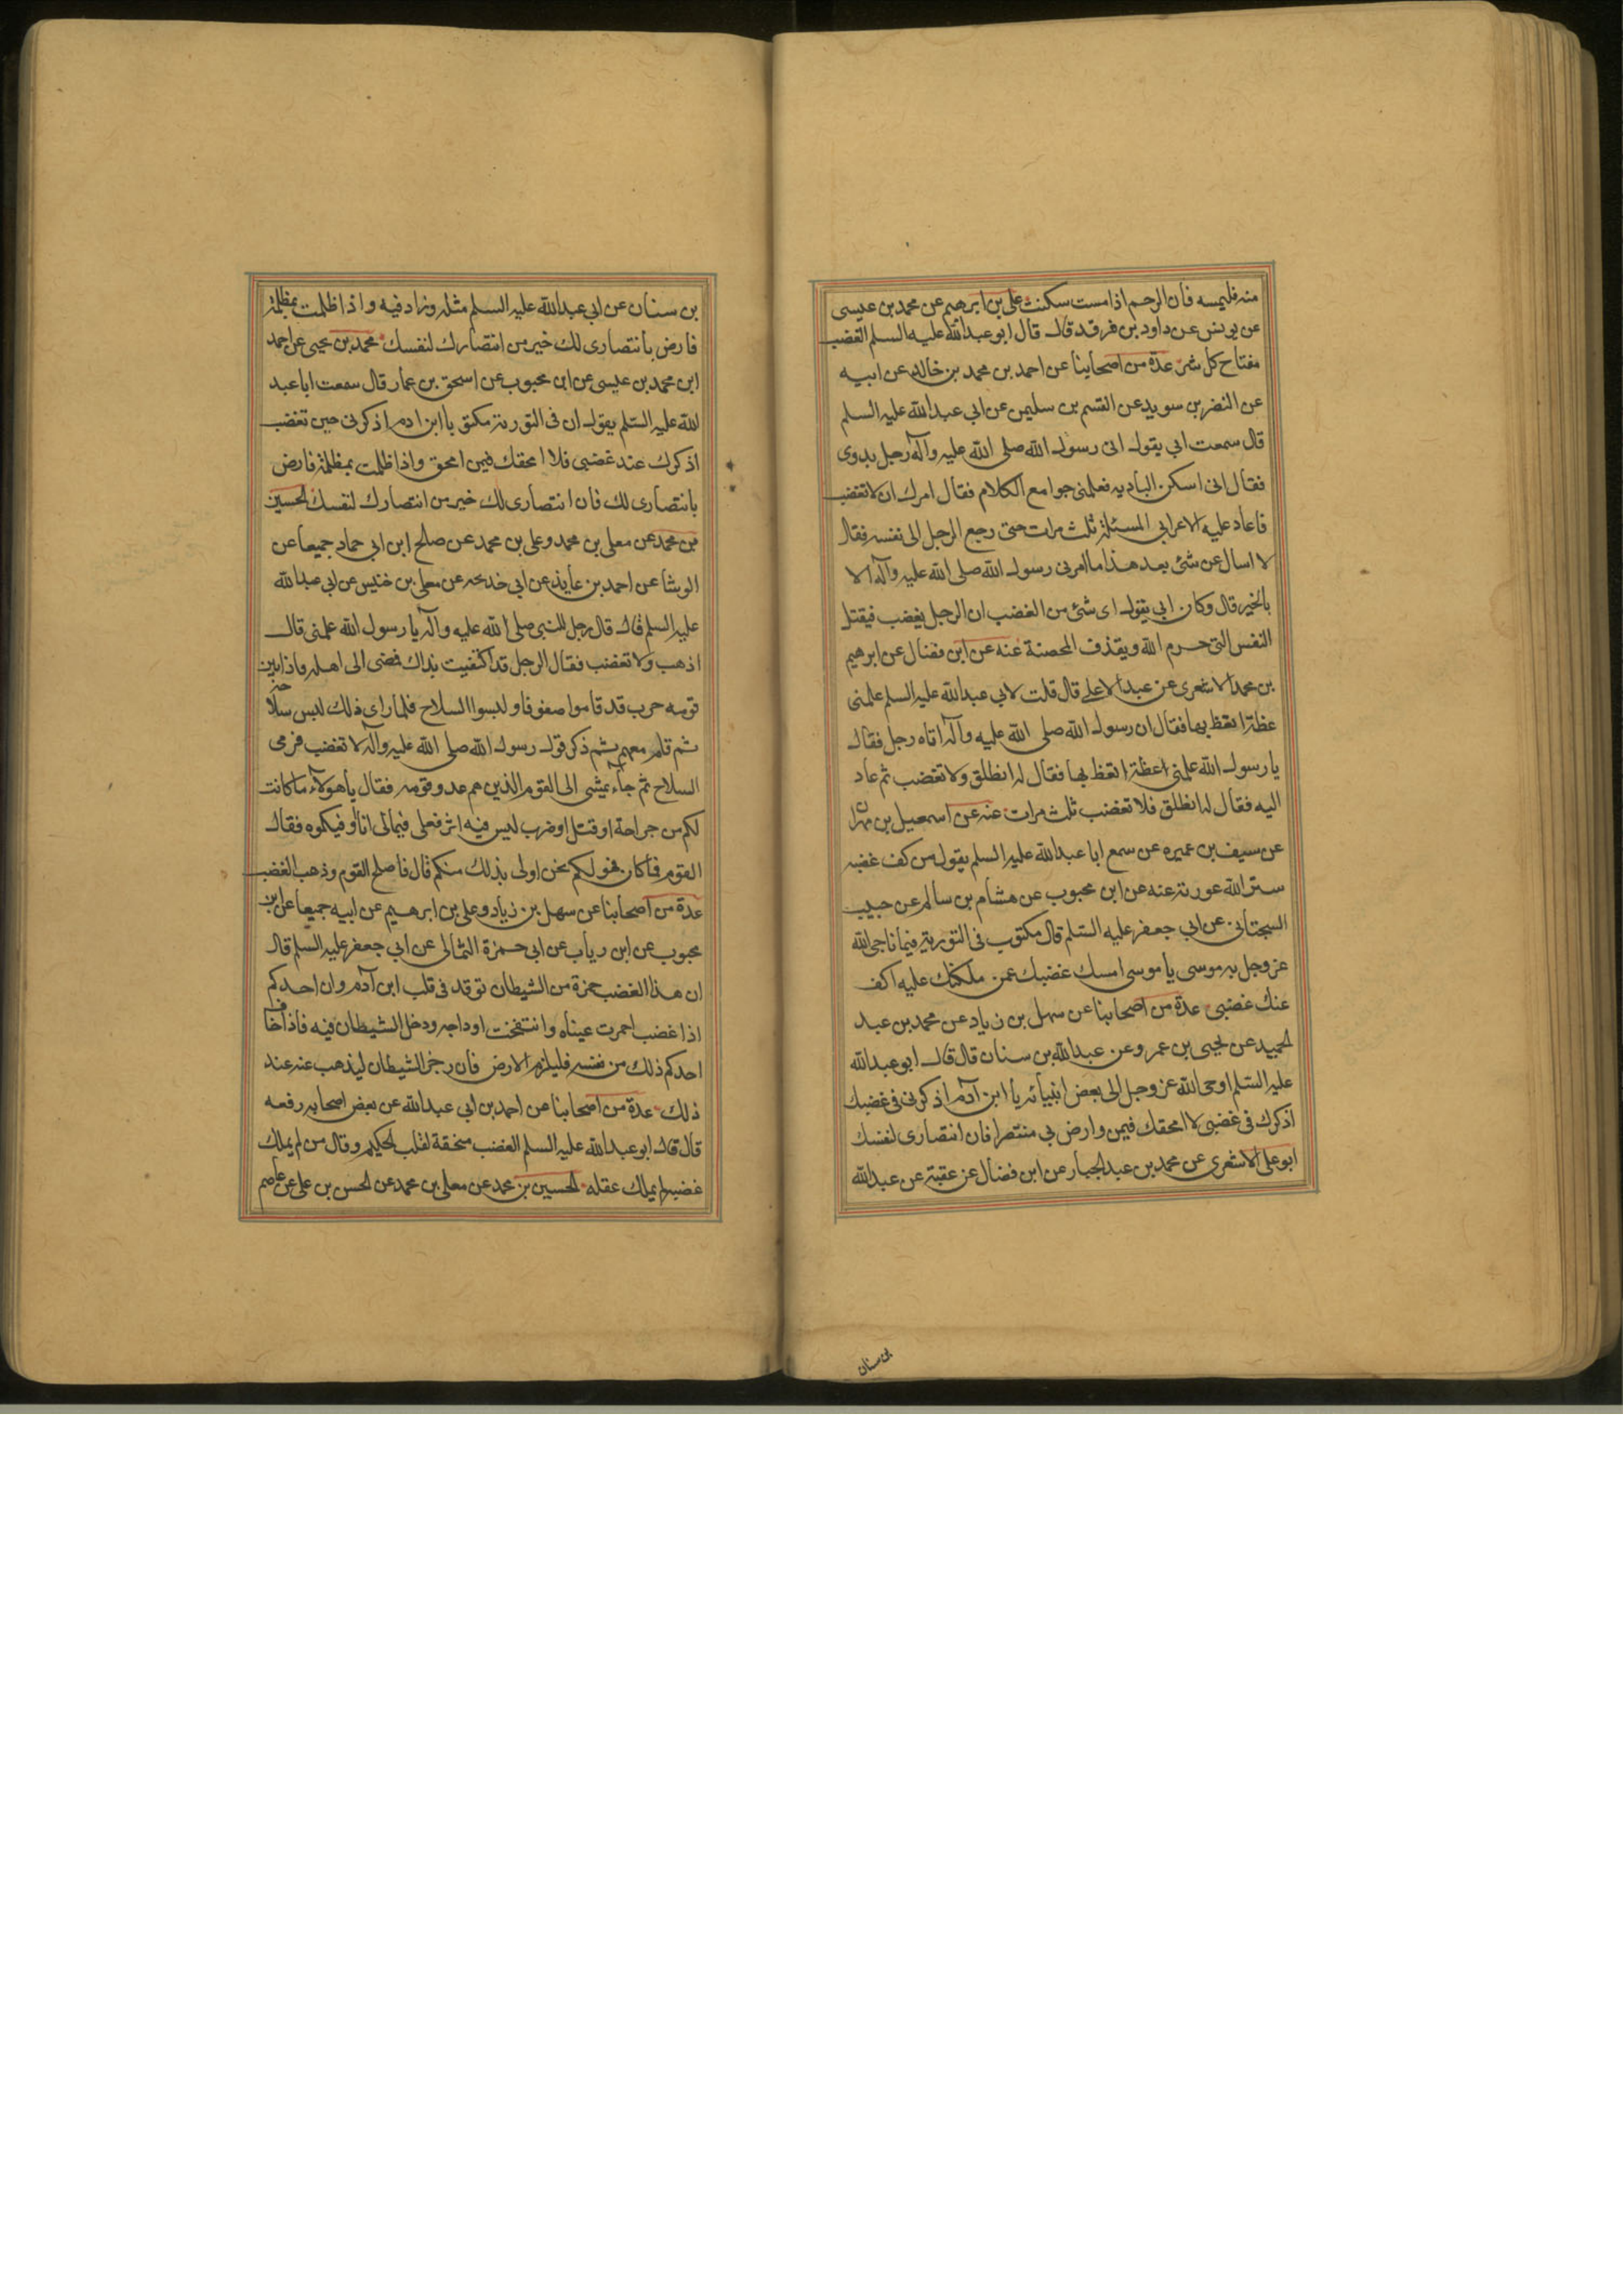 منه فليمسه فان الرحم اذا مست سكنت علي بن ابرهيم عن محمد بن عيسى
عن يونس عن داود بن فرقد قال قال ابو عبد الله عليه السلم الغضب
مفتاح كل شر عدة من اصحابنا عن احمد بن محمد بن خالد عن ابيه
عن النضر بن سويد عن القسم بن سليمن عن ابي عبد الله عليه السلم
قال سمعت ابي يقول اتى رسول الله صلى الله عليه وآله رجل بدوى
فقال انى اسكن البادية فعلمنى جوامع الكلام فقال امرك ان لا تغضب
فاعاد عليه الاعرابي المسئلة ثلث مرات حتى رجع الرجل الى نفسه فقال
لا اسال عن شئ بعد هذا ما امرنى رسول الله صلى الله عليه وآله الا
بالخير قال وكان ابي يقول اى شئ من الغضب ان الرجل يغضب فيقتل
النفس التى حرم الله ويقذف المحصنة عنه عن ابن فضال عن ابرهيم
بن محمد الاشعرى عن عبد الاعلى قال قلت لابي عبد الله عليه السلم علمنى
عظة اتعظ بها فقال ان رسول الله صلى الله عليه وآله اتاه رجل فقال
يا رسول الله علمنى اعظة اتعظ بها فقال له انطلق ولا تغضب ثم عاد
اليه فقال له انطلق فلا تغضب ثلث مرات عنه عن اسمعيل بن مهران
عن سيف بن عميره عن سمع ابا عبد الله عليه السلم يقول من كف غضبه
ستر الله عورته عنه عن ابن محبوب عن هشام بن سالم عن حبيب
السجتانى عن ابي جعفر عليه السلم قال مكتوب فى التورية فيما ناجى الله
عز وجل به موسى يا موسى امسك غضبك عمن ملكتك عليه اكف
عنك غضبى عدة من اصحابنا عن سهل بن زياد عن محمد بن عبد
الحميد عن يحيى بن عمرو عن عبد الله بن سنان قال قال ابو عبد الله
عليه السلم اوحى الله عز وجل الى بعض انبيائه يا ابن آدم اذكرنى فى غضبك
اذكرك فى غضبى لا امحقك فيمن وارض بي منتصرا فان انتصارى لنفسك
ابو على الاشعرى عن محمد بن عبد الجبار عن ابن فضال عن عقبة عن عبد الله
بن سنان
بن سنان عن ابي عبد الله عليه السلم مثله وزاد فيه واذا ظلمت بمظلمة
فارض بانتصارى لك خير من انتصارك لنفسك محمد بن يحيى عن احمد
ابن محمد بن عيسى عن ابن محبوب عن اسحق بن عمار قال سمعت ابا عبد
الله عليه السلم يقول ان فى التورية مكتوب يا ابن ادم اذكرنى حين تغضب
اذكرك عند غضبى فلا امحقك فيمن امحق واذا ظلمت بمظلمة فارض
بانتصارى لك فان انتصارى لك خير من انتصارك لنفسك الحسين
بن محمد عن معلى بن محمد وعلى بن محمد عن صلح ابن ابي حماد جميعا عن
الوشا عن احمد بن عايذ عن ابي خديجه عن معلى بن خنيس عن ابي عبد الله
عليه السلم قال قال رجل للنبى صلى الله عليه وآله يا رسول الله علمنى قال
اذهب ولا تغضب فقال الرجل قد اكتفيت بذاك فمضى الى اهله فاذا بين
قومه حرب قد قاموا صفوفا ولبسوا السلاح فلما راى ذلك لبس سلاحه
ثم قام معهم ثم ذكر قول رسول الله صلى الله عليه وآله لا تغضب فرمى
السلاح ثم جاء يمشى الى القوم الذين هم عدو قومه فقال يا هولاء ما كانت
لكم من جراحة او قتل او ضرب ليس فيه اثر فعلى فى مالى انا اوفيكموه فقال
القوم فما كان فهو لكم نحن اولى بذلك منكم قال فاصلح القوم وذهب الغضب
عدة من اصحابنا عن سهل بن زياد وعلى بن ابرهيم عن ابيه جميعا عن ابن
محبوب عن ابن رياب عن ابي حمزة الثمالى عن ابي جعفر عليه السلم قال
ان هذا الغضب جمرة من الشيطان توقد فى قلب ابن آدم وان احدكم
اذا غضب احمرت عيناه وانتفخت اوداجه ودخل الشيطان فيه فاذا خاف
احدكم ذلك من نفسه فليلزم الارض فان رجز الشيطان ليذهب عنه عند
ذلك عدة من اصحابنا عن احمد بن ابي عبد الله عن بعض اصحابه رفعه
قال قال ابو عبد الله عليه السلم الغضب ممحقة لقلب الحكيم وقال من لم يملك
غضبه لم يملك عقله الحسين بن محمد عن معلى بن محمد عن الحسن بن على عن عاصم